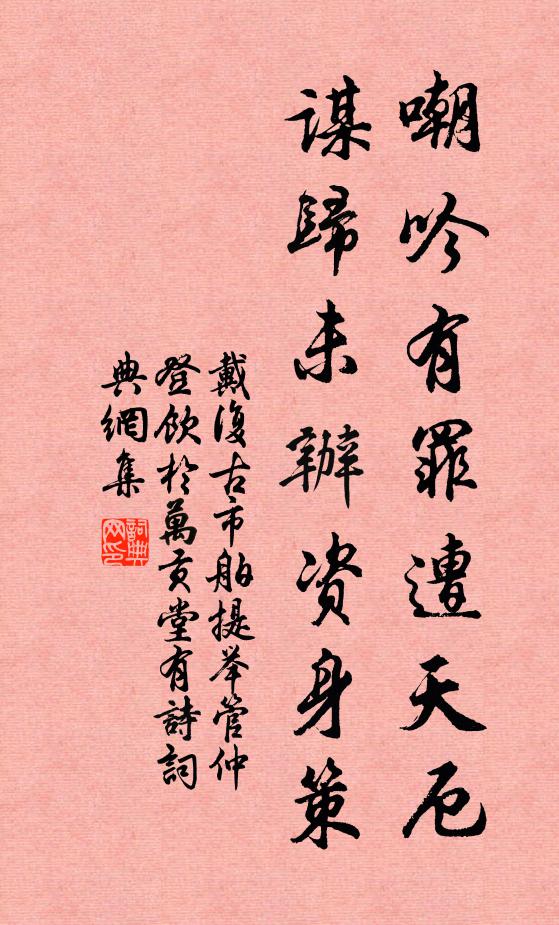 嘲吟有罪遭天厄
謀歸未辦資身策
戴復古市舶提举管仲
登飲於萬貢堂有詩詞
典網集
詞典
网印